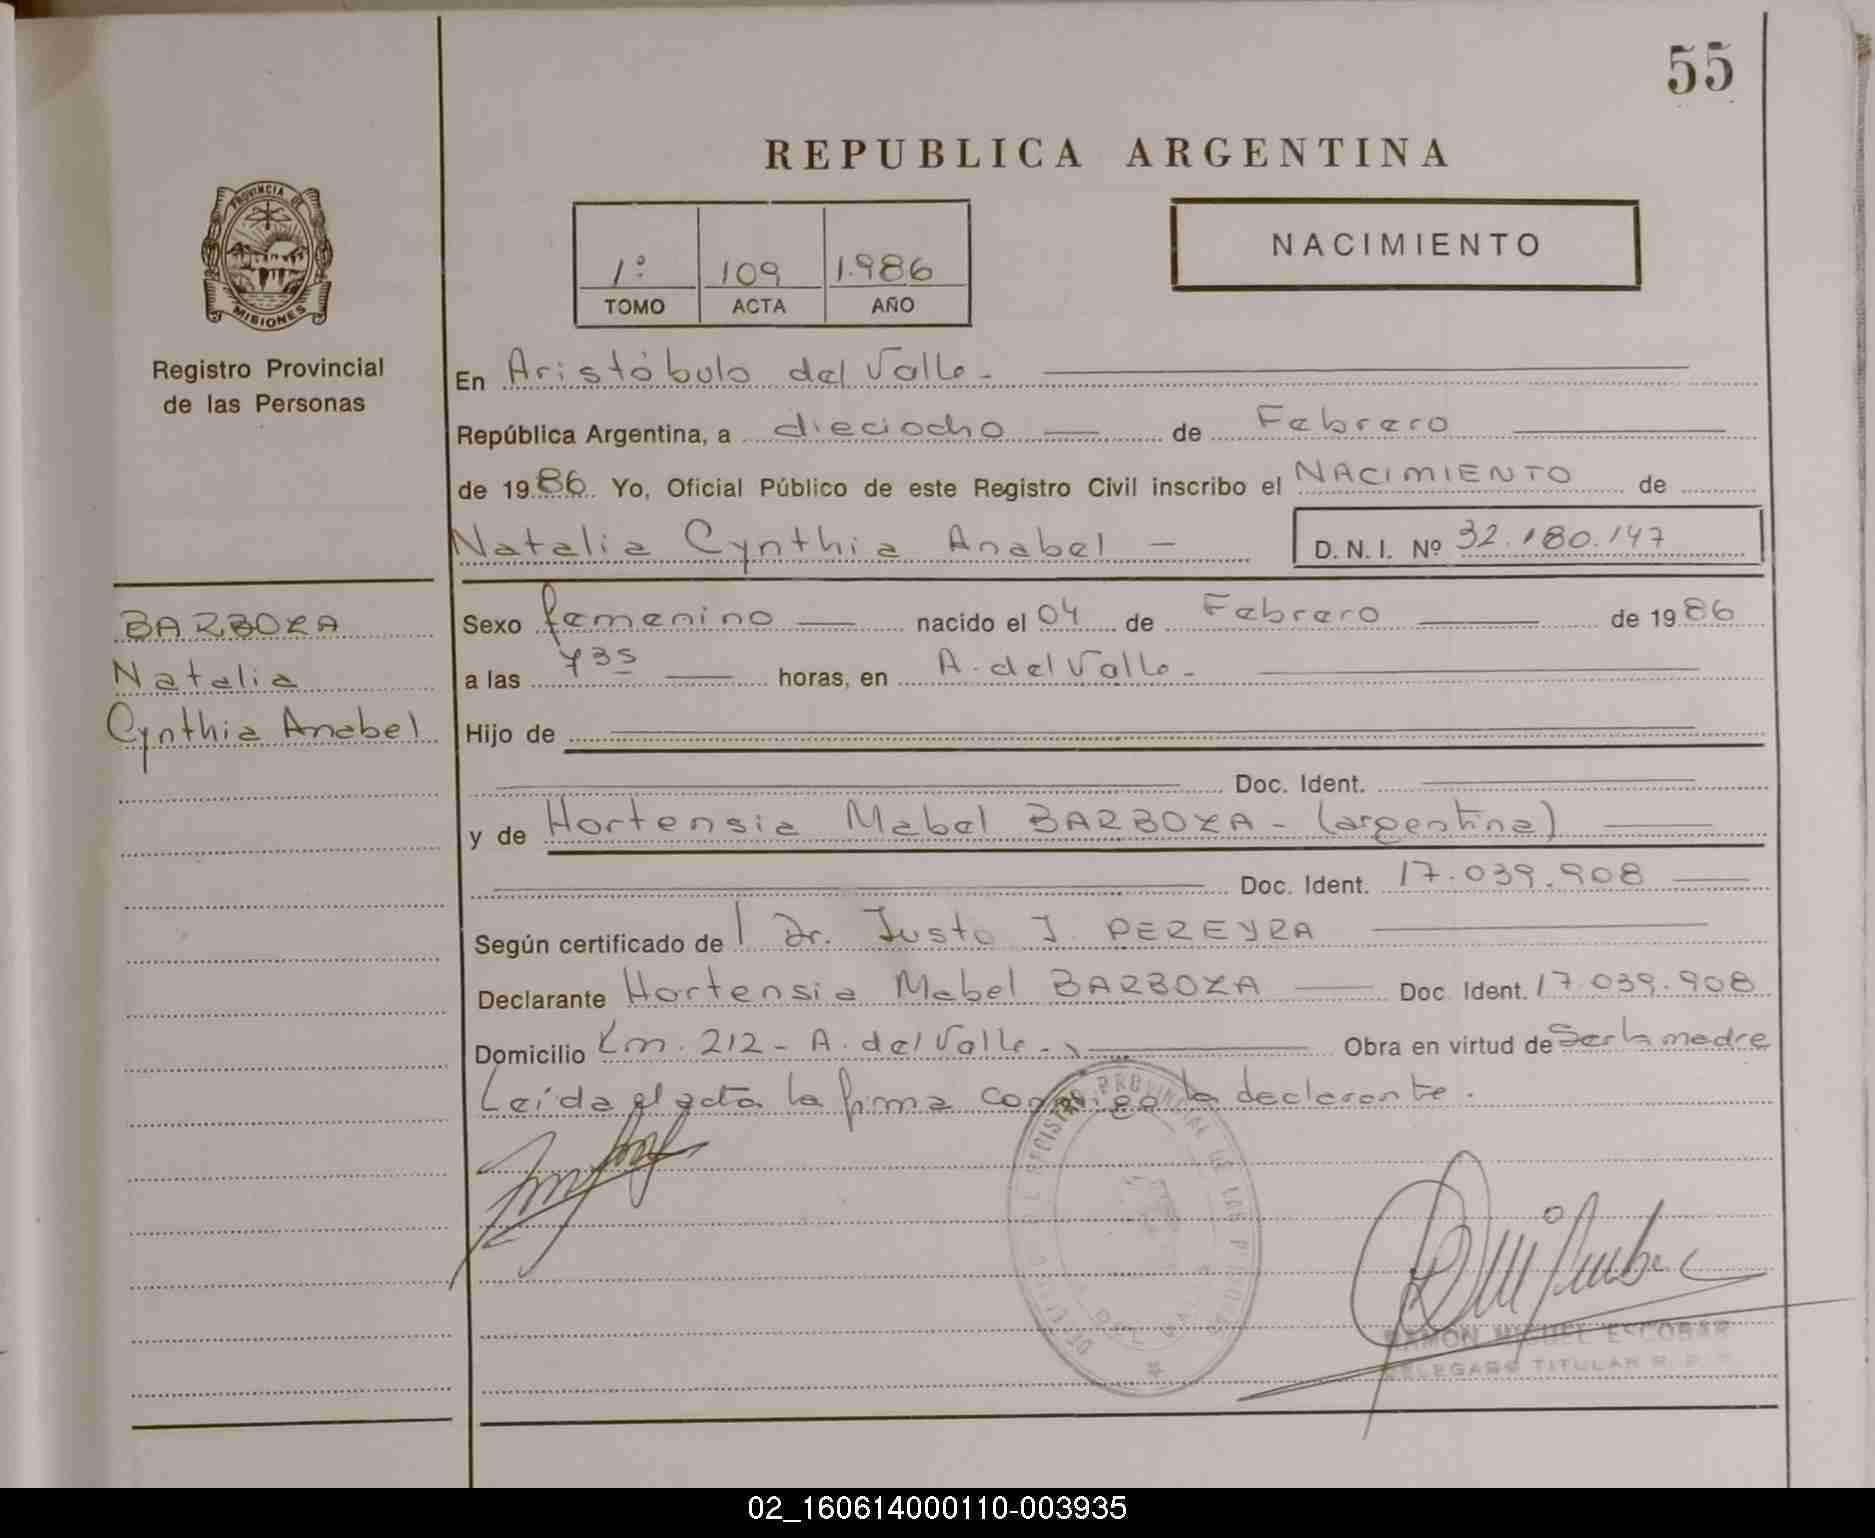 55
REPUBLICA ARGENTINA
PROVINCIA DE
MISIONES
Registro Provincial
de las Personas
1º 109 1.986
TOMO ACTA AÑO
NACIMIENTO
En Aristóbulo del Valle.-
República Argentina, a dieciocho de Febrero
de 1986. Yo, Oficial Público de este Registro Civil inscribo el NACIMIENTO de
Natalia Cynthia Anabel - D. N. I. Nº 32.180.147
BARBOZA
Natalia
Cynthia Anabel
Sexo femenino nacido el 04 de Febrero de 1986
a las 735 horas, en A. del Valle.-
Hijo de
Doc. Ident.
y de Hortensia Mabel BARBOZA - (argentina)
Doc. Ident. 17.039.908
Según certificado de Dr. Justo J. PEREYRA
Declarante Hortensia Mabel BARBOZA Doc. Ident. 17.039.908
Domicilio Km. 212 - A. del Valle.- Obra en virtud de Ser la madre
Leída el acta la firma conmigo la declarante.
RAMON MIGUEL ESCOBAR
DELEGADO TITULAR R. P. P.
02_160614000110-003935